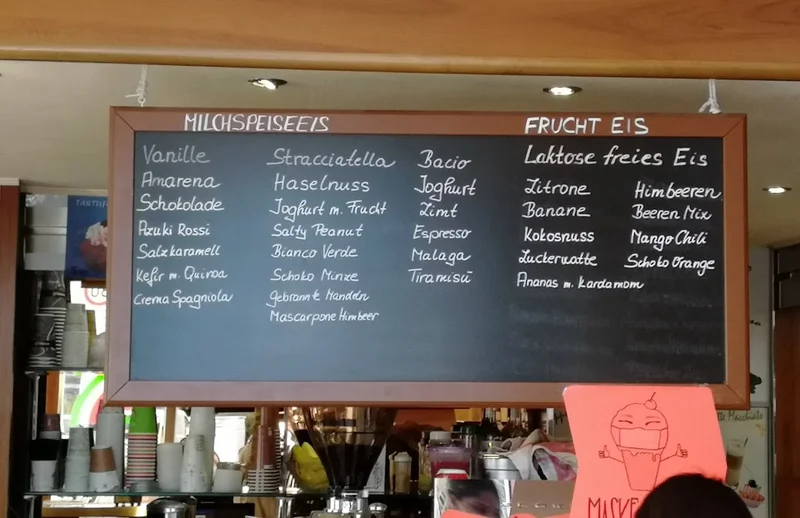 MILCHSPEISEEIS
Vanille
Amarena
Schokolade
Azuki Rossi
Salzkaramell
Kefir m. Quinoa
Crema Spagniola
Stracciatella
Haselnuss
Joghurt m. Frucht
Salty Peanut
Bianco Verde
Schoko Minze
Gebrannte Mandeln
Mascarpone Himbeer
Bacio
Joghurt
Zimt
Espresso
Malaga
Tiramisu
FRUCHT EIS
Laktose freies Eis
Zitrone
Banane
Kokosnuss
Zuckerwatte
Ananas m. Kardamom
Himbeeren
Beeren Mix
Mango Chili
Schoko Orange
MASKE